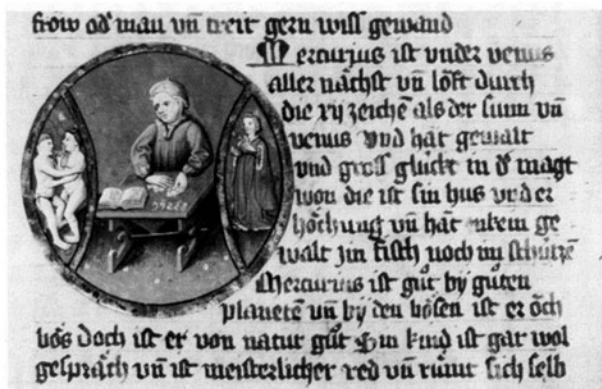 frow od' man vñ treit gern wiss gewand
Mercurius ist vnder venus
aller nächst vñ löft durch
die xij zeichē als der sunn vñ
venus vnd hat gewalt
vnd gross glückt in d' magt
won die ist sin hus vnd er
höchung vñ hat enkein ge
walt jn fisch noch im schützē
Mercurius ist gůt by gůten
planetē vñ by den bösen ist er öch
bös doch ist er von natur gůt Sin kind ist gar wol
gespräch vñ ist meisterlicher red vñ růmt sich selb